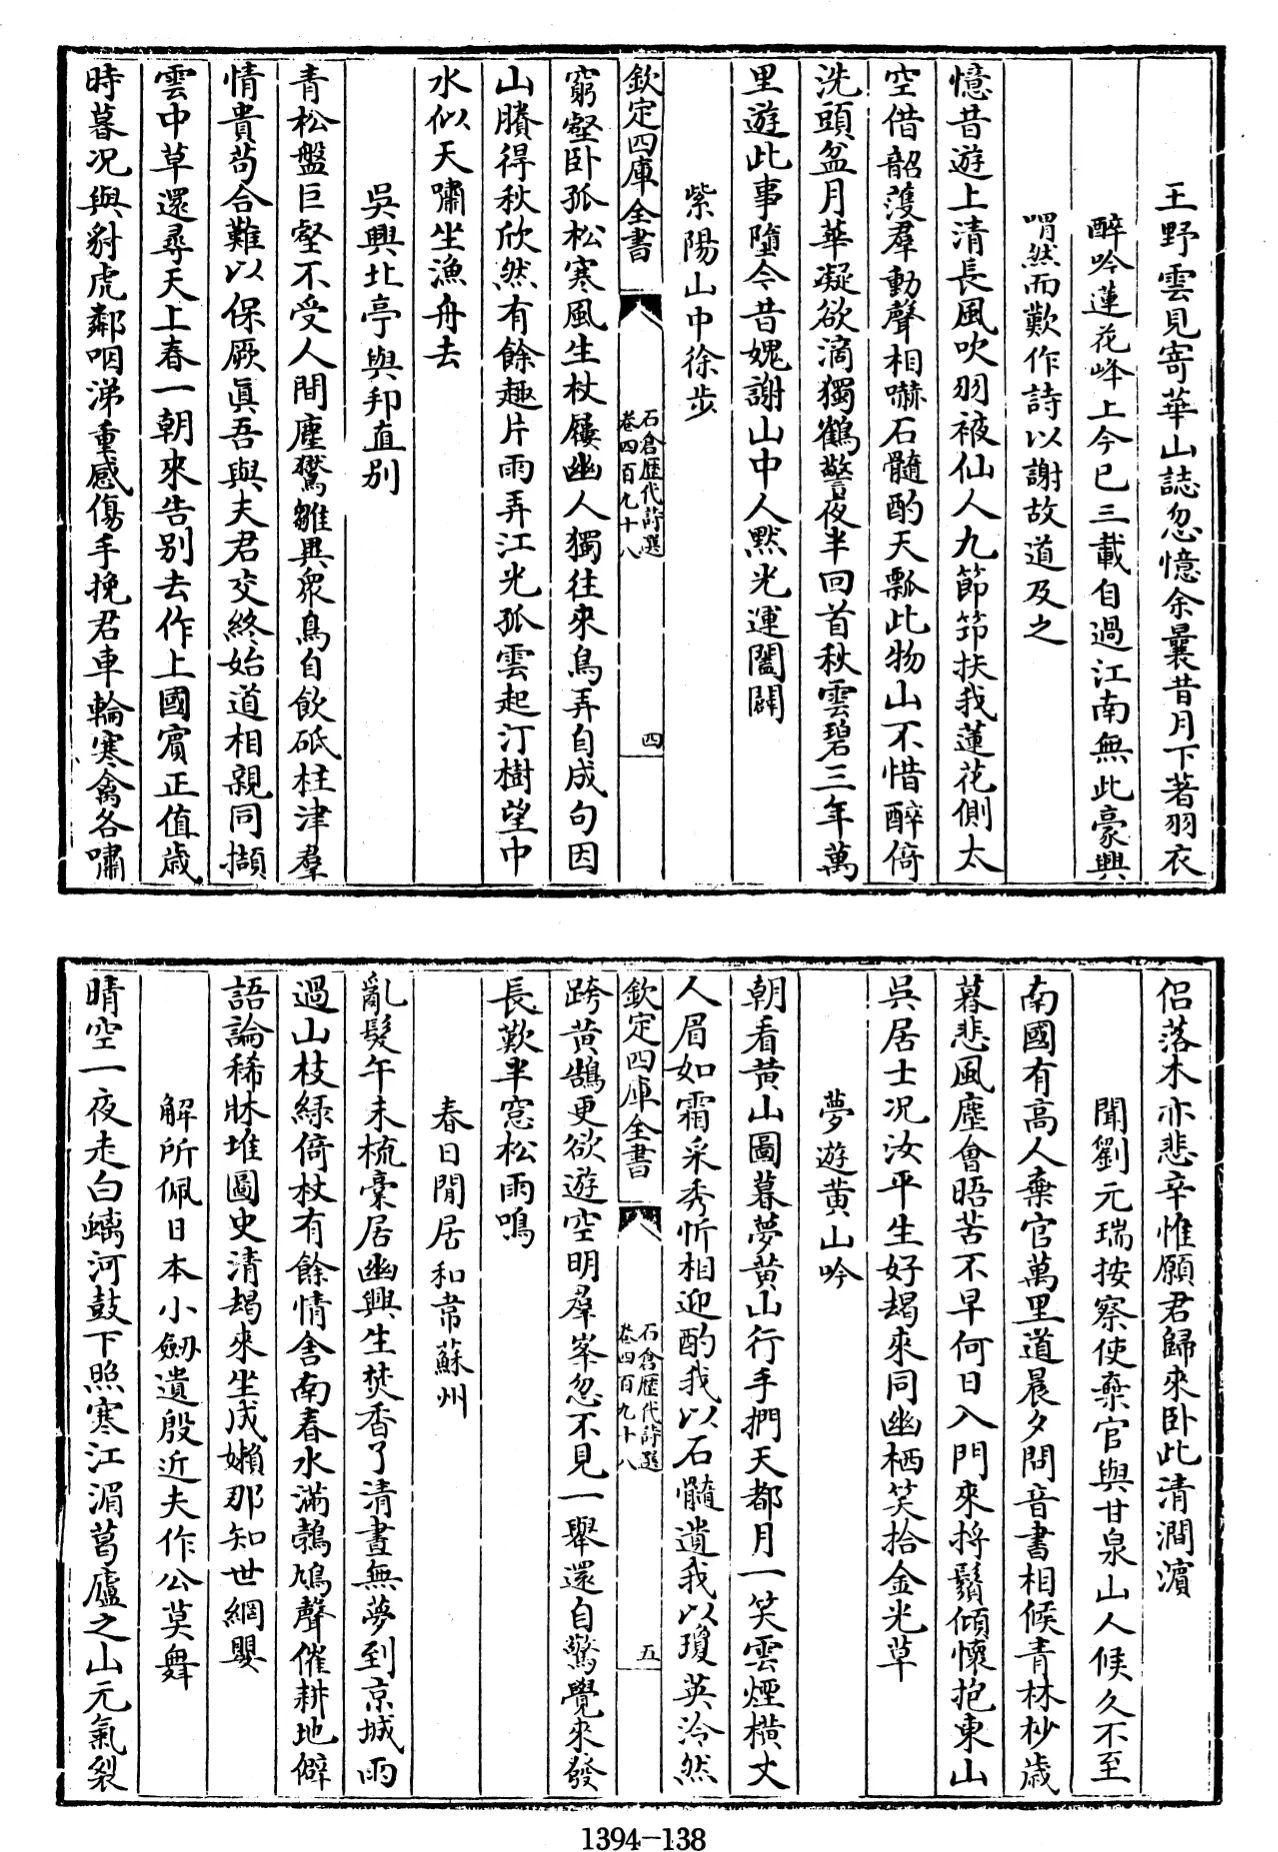 王野雲見寄華山誌忽憶余曩昔月下著羽衣
醉吟蓮花峰上今已三載自過江南無此豪興
喟然而歎作詩以謝故道及之
憶昔遊上清長風吹羽被仙人九節笻扶我蓮花側太
空借韶濩羣動聲相嚇石髓酌天瓢此物山不惜醉倚
洗頭盆月華凝欲滴獨鶴警夜半回首秋雲碧三年萬
里遊此事墮今昔媿謝山中人黙光運闔闢
紫陽山中徐步
欽定四庫全書
石倉歷代詩選
卷四百九十八
四
窮壑卧孤松寒風生杖屨幽人獨往來鳥弄自成句因
山賸得秋欣然有餘趣片雨弄江光孤雲起汀樹望中
水似天嘯坐漁舟去
吳興北亭與邦直别
青松盤巨壑不受人間塵鸑雛異衆鳥自飲砥柱津羣
情貴苟合難以保厥真吾與夫君交終始道相親同擷
雲中草還尋天上春一朝來告别去作上國賓正值歳
時暮况與豺虎鄰咽涕重感傷手挽君車輪寒禽各嘯
侣落木亦悲辛惟願君歸來卧此清澗濵
聞劉元瑞按察使棄官與甘泉山人候久不至
南國有高人棄官萬里道晨夕問音書相候青林杪歳
暮悲風塵會晤苦不早何日入門來捋鬚傾懷抱東山
吳居士况汝平生好朅來同幽栖笑拾金光草
夢遊黄山吟
朝看黄山圖暮夢黄山行手捫天都月一笑雲煙横丈
人眉如霜采秀忻相迎酌我以石髓遺我以瓊英泠然
欽定四庫全書
石倉歷代詩選
卷四百九十八
五
跨黄鵠更欲遊空明羣峯忽不見一舉還自驚覺來發
長歎半窓松雨鳴
春日閒居和韋蘇州
亂髮午未梳稾居幽興生焚香了清晝無夢到京城雨
過山枝緑倚杖有餘情舍南春水滿鵓鳩聲催耕地僻
語論稀牀堆圖史清朅來坐成懶那知世網嬰
解所佩日本小劒遺殷近夫作公莫舞
晴空一夜走白螭河鼓下照寒江湄葛廬之山元氣裂
1394—138